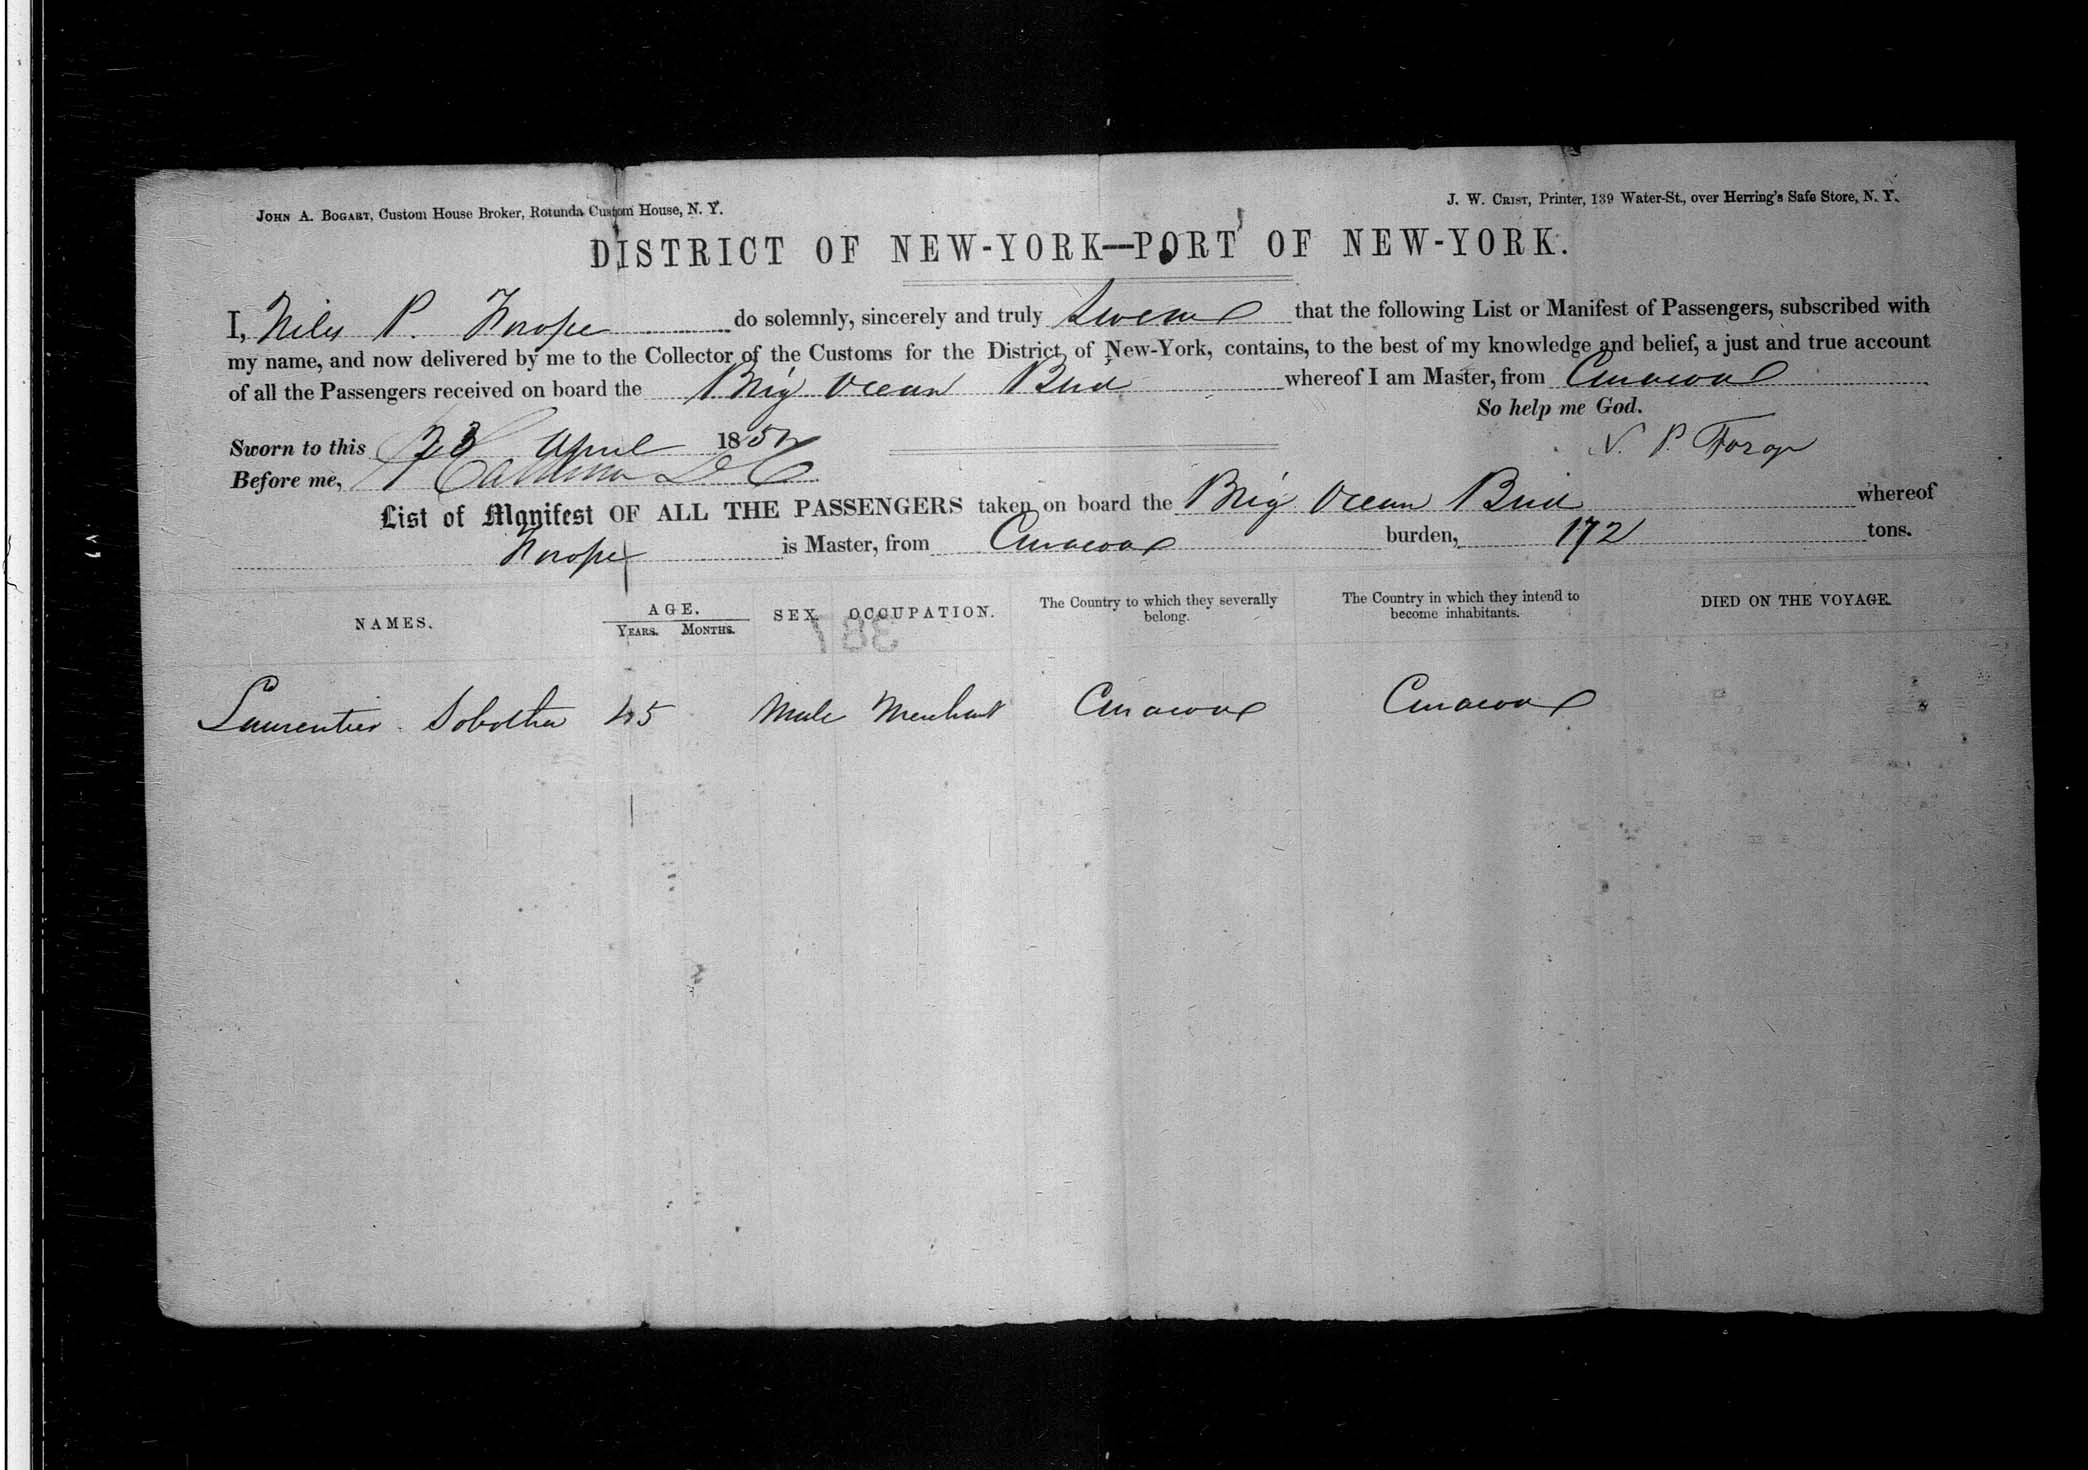 JOHN A. BOGART, Custom House Broker, Rotunda Custom House, N. Y.
J. W. CRIST, Printer, 139 Water-St., over Herring's Safe Store, N. Y.
DISTRICT OF NEW-YORK—PORT OF NEW-YORK.
I, Niles P. do solemnly, sincerely and truly Swear that the following List or Manifest of Passengers, subscribed with
my name, and now delivered by me to the Collector of the Customs for the District of New-York, contains, to the best of my knowledge and belief, a just and true account
of all the Passengers received on board the Brig Ocean Bird whereof I am Master, from Curacoa
So help me God.
Sworn to this 23 April 1852
N. P.
Before me,
List of Manifest OF ALL THE PASSENGERS taken on board the Brig Ocean Bird whereof
is Master, from Curacoa burden, 172 tons.
NAMES. AGE. YEARS. MONTHS. SEX. OCCUPATION. The Country to which they severally belong. The Country in which they intend to become inhabitants. DIED ON THE VOYAGE.
387
45 Male Merchant Curacoa Curacoa